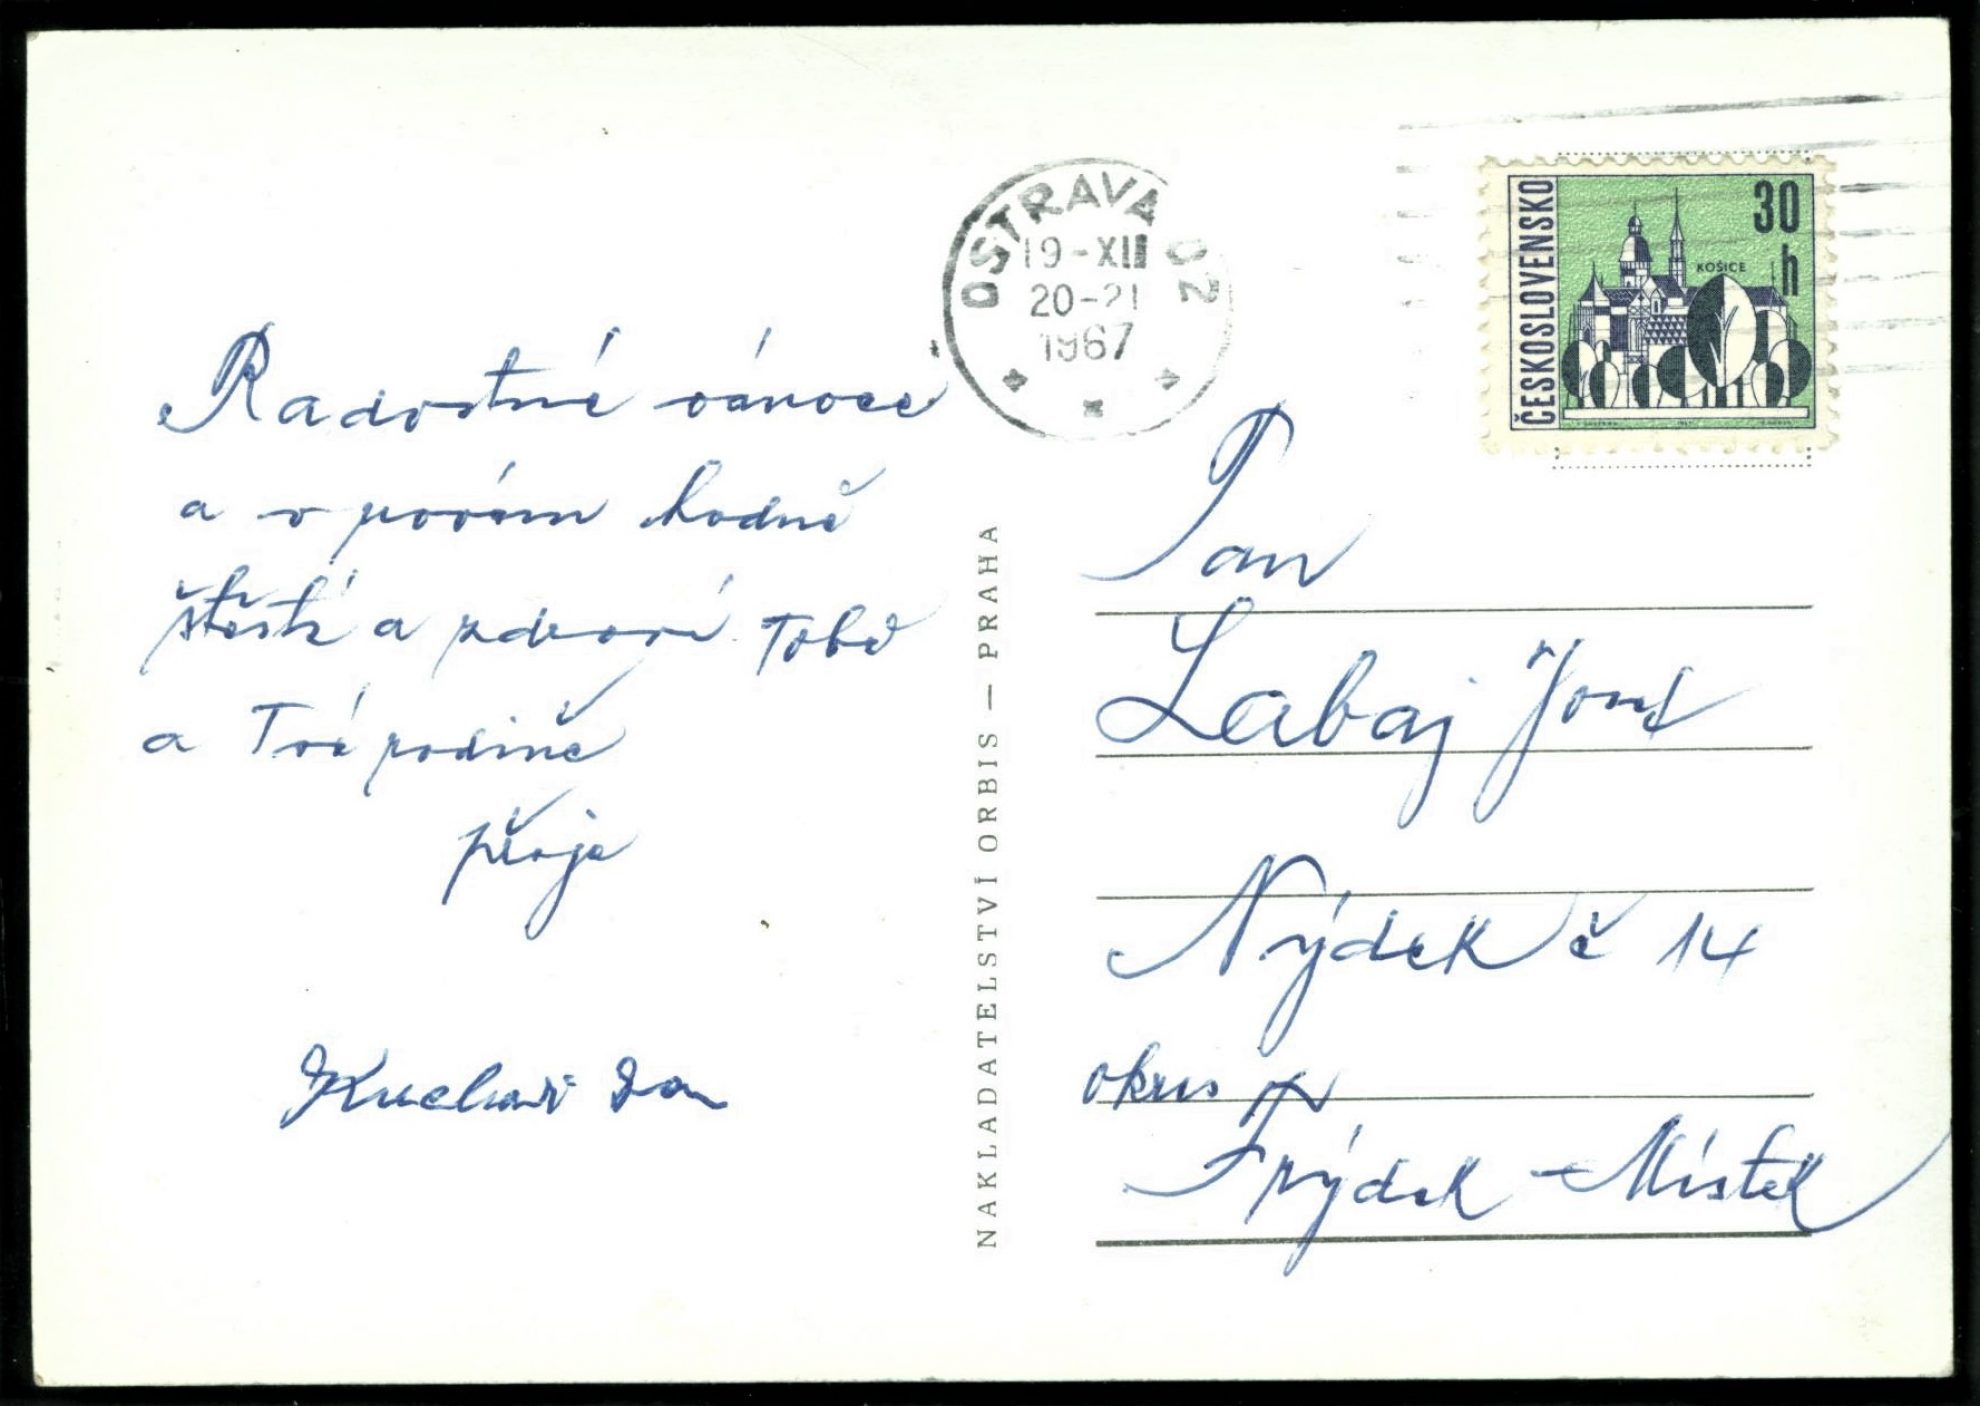 Radostné vánoce
a v novém hodně
štěstí a zdraví Tobě
a Tvé rodině
přeje
Kuchař Jan
NAKLADATELSTVÍ ORBIS — PRAHA
OSTRAVA 02
19-XII
20-21
1967
ČESKOSLOVENSKO
30
h
KOŠICE
Pan
Labaj Josef
Nýdek č 14
okres
Frýdek - Místek